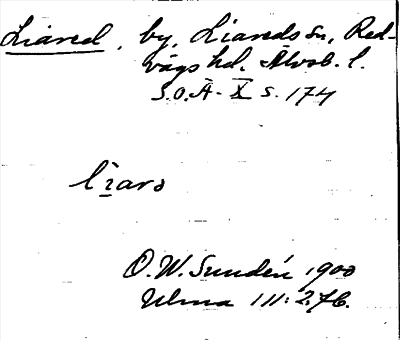 Liared, by, Liareds sn, Red-
vägs hd. Älvsb. l.
S.O.Ä. X s. 174
lìara
O.W. Sundén 1900
Ulma 111:2,76.